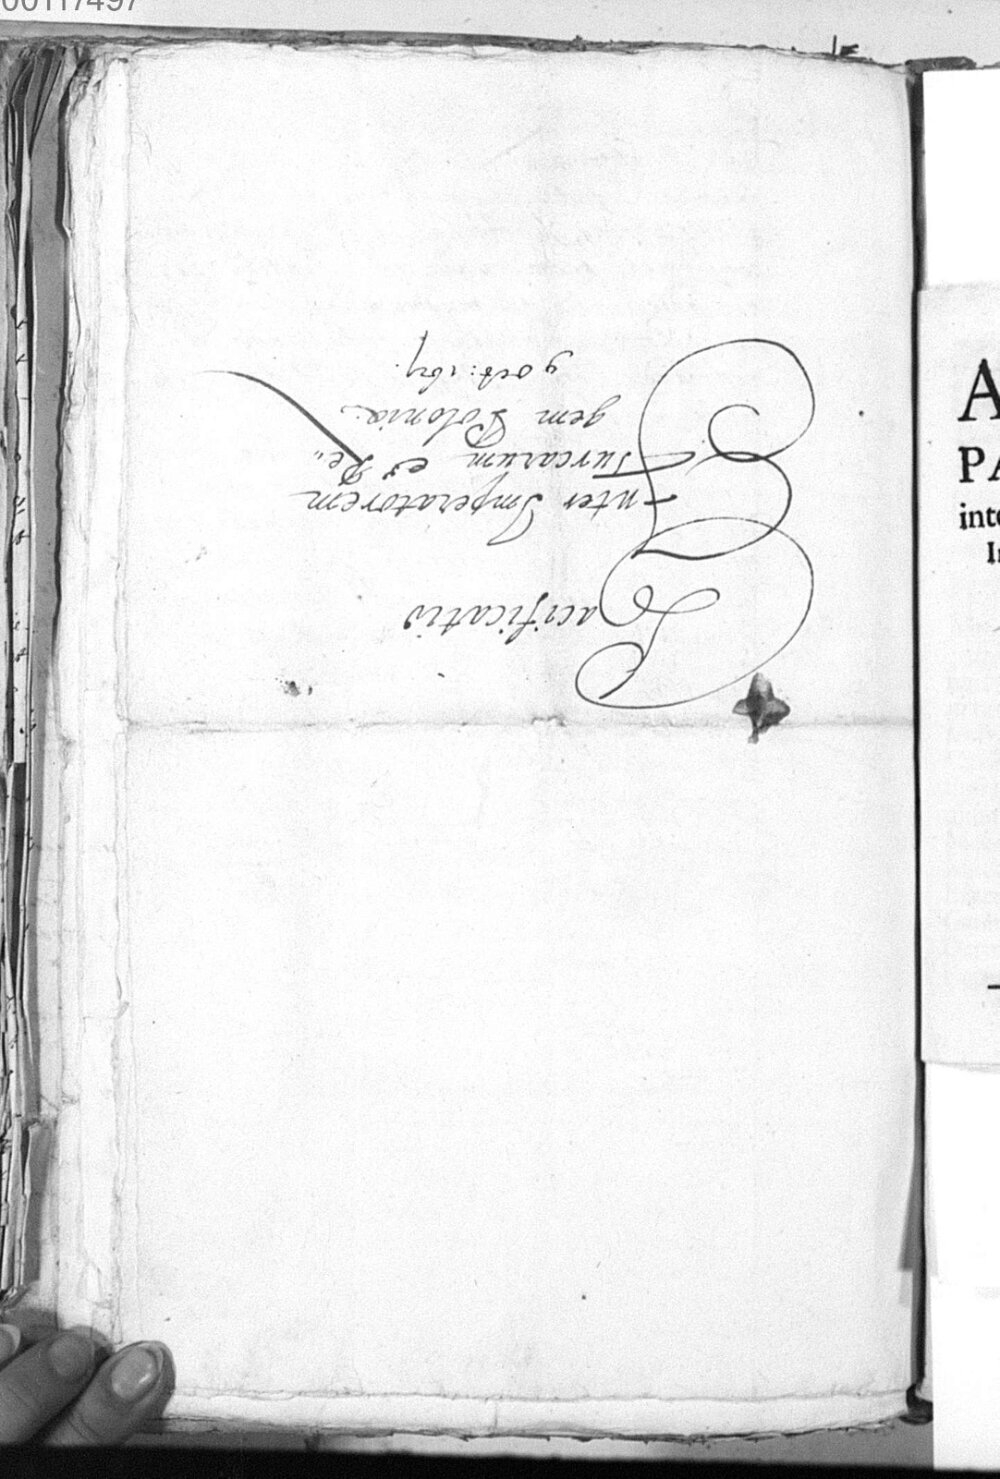 00117497
Pacificatio
Inter Imperatorem
Turcarum et Re„
gem Poloniæ.
9 oct: 1621.
A
PA
inte